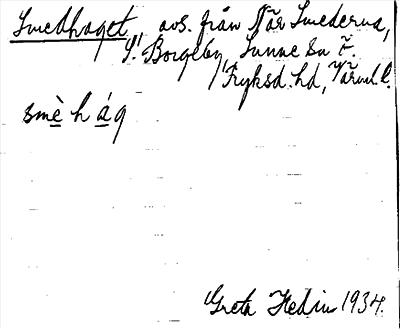 Smedhaget, avs. från Där Smederna,
S. Borgeby Sunne sn
Fryksd. hd, Värml. l.
smè h á g
Greta Hedin 1934.